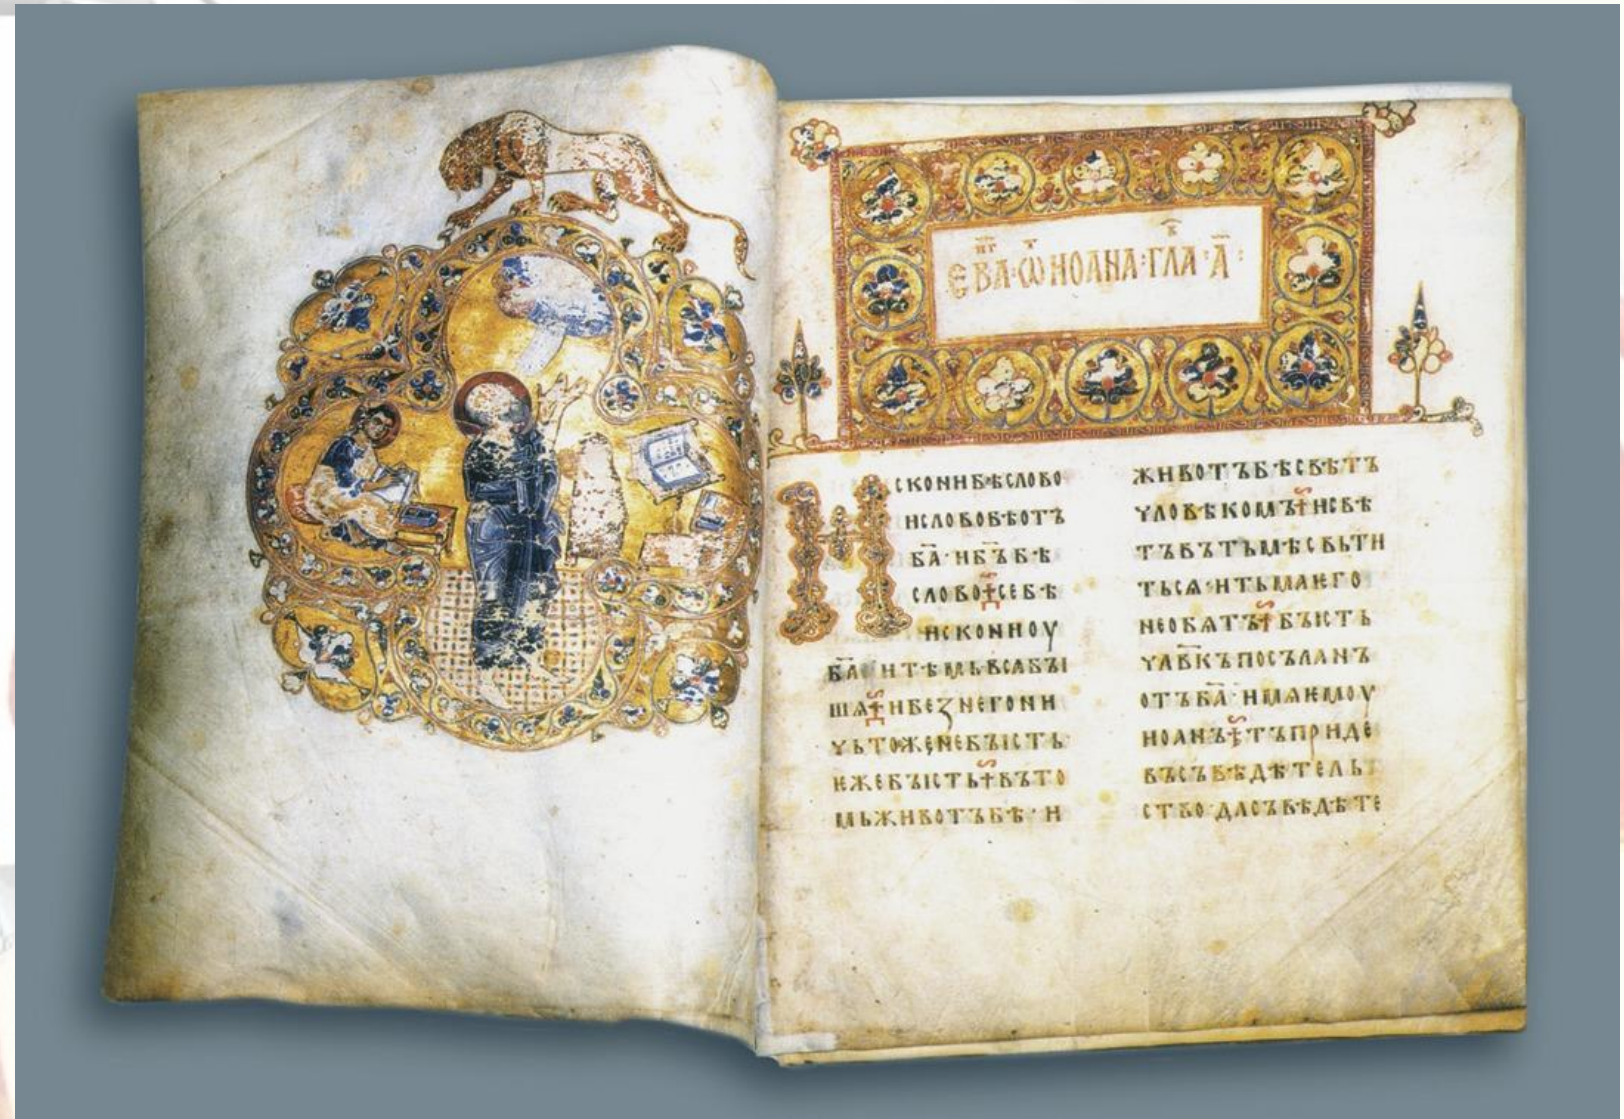 ЕВА·ѾИОАНА·ГЛА·А҃·
ИСКОНИБѢСЛОВО
ИСЛОВОБѢОТЪ
БА҃·ИБЪ҃БѢ
СЛОВО СЕБѢ
ИСКОНИОУ
БА҃·ИТѢМЬВСѦБЪІ
ШѦ ИБЕЗНЕГОНИ
ЧЬТОЖЕНЕБЪІСТЬ·
ѤЖЕБЪІСТЬ ВЪТО
МЬЖИВОТЪБѢ·И
ЖИВОТЪБѢСВѢТЪ
ЧЛОВѢКОМЪ ИСВѢ
ТЪВЪТЬМѢСВЬТИ
ТЬСѦ·ИТЬМАѤГО
НЕОБѦТЪ БЪІСТЬ
ЧЛВ҃КЪПОСЪЛАНЪ
ОТЪБА҃·ИМѦѤМОУ
ИОАНЪ ТЪПРИДЕ
ВЪСЪВѢДѢТЕЛЬ
СТВО·ДАСЪВѢДѢТЕ